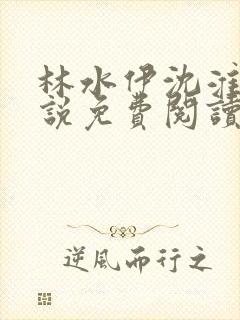 林水伊沈淮
說免費閱讀
逆風而行之